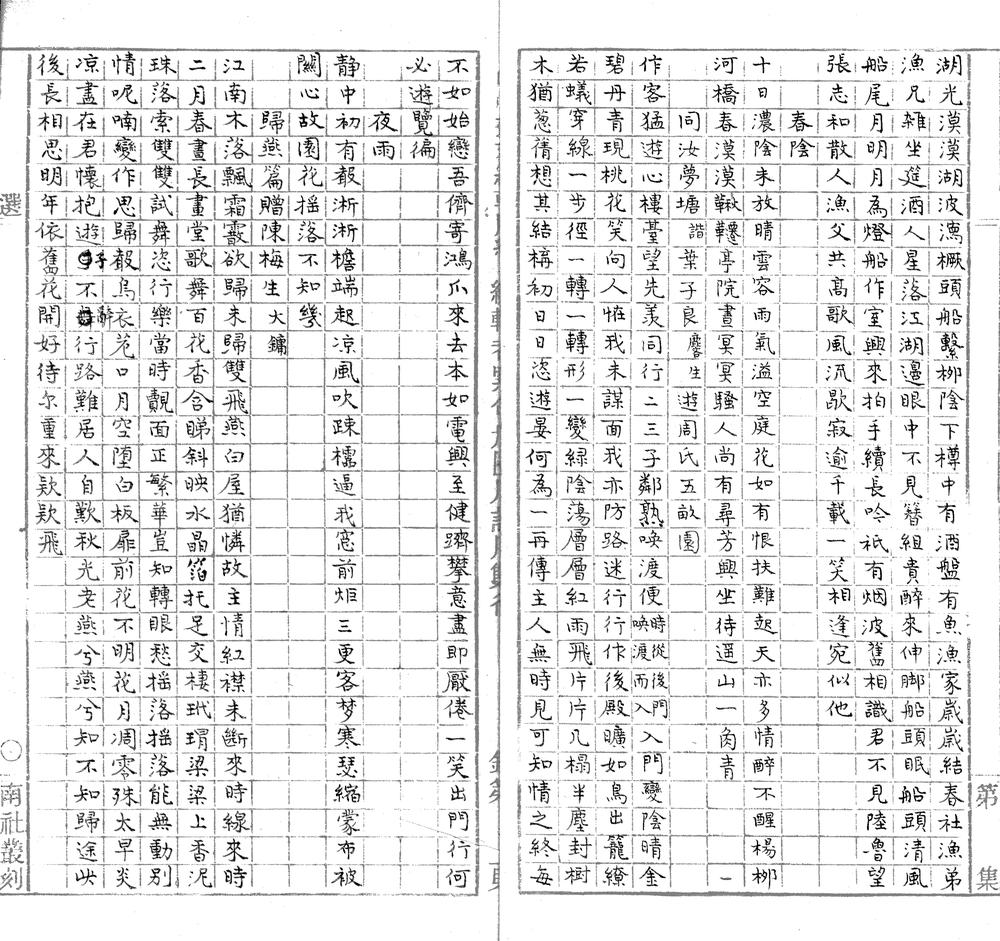 第集
湖光漠漠湖波漓橛頭船繫柳陰下樽中有酒盤有魚漁家歲歲結春社漁弟
漁兄雜坐筵酒人星落江湖邊眼中不見簪組貴醉來伸脚船頭眠船頭清風
船尾月明月為燈船作室興來拍手續長吟祇有烟波舊相識君不見陸魯望
張志和散人漁父共高歌風流歇寂逾千載一笑相逢宛似他
春陰
十日濃陰未放晴雲容雨氣溢空庭花如有恨扶難起天亦多情醉不醒楊柳
河橋春漠漠鞦韆亭院晝冥冥騷人尚有尋芳興坐待遥山一角青
同汝夢塘諧葉子良馨生遊周氏五畝園
作客猛遊心樓臺望先羨同行二三子鄰熟喚渡便喚渡時從而入後門入門變陰晴金
碧丹青現桃花笑向人惟我未謀面我亦防路迷行行作後殿曠如鳥出籠繚
若蟻穿線一步徑一轉一轉形一變綠陰蕩層層紅雨飛片片几榻半塵封樹
木猶葱蒨想其結構初日日恣遊晏何為一再傳主人無時見可知情之終每
不如始戀吾儕寄鴻爪來去本如電興至健躋攀意盡即厭倦一笑出門行何
必遊覽徧
夜雨
静中初有聲淅淅檐端起凉風吹疎櫺逼我窓前炬三更客梦寒瑟縮蒙布被
關心故園花摇落不知幾
歸燕篇贈陳梅生大鏞
江南木落飄霜霰欲歸未歸雙飛燕白屋猶憐故主情紅襟未斷來時線來時
二月春晝長畫堂歌舞百花香含睇斜映水晶箔托足交棲玳瑁梁梁上香泥
珠落索雙雙試舞恣行樂當時覿面正繁華豈知轉眼愁摇落摇落能無動別
情呢喃變作思歸聲烏衣巷口月空墮白板扉前花不明花月凋零殊太早炎
凉盡在君懷抱遊子不辭行路難居人自歎秋光老燕兮燕兮知不知歸途此
後長相思明年依舊花開好待尔重來款款飛
選
〇南社叢刻